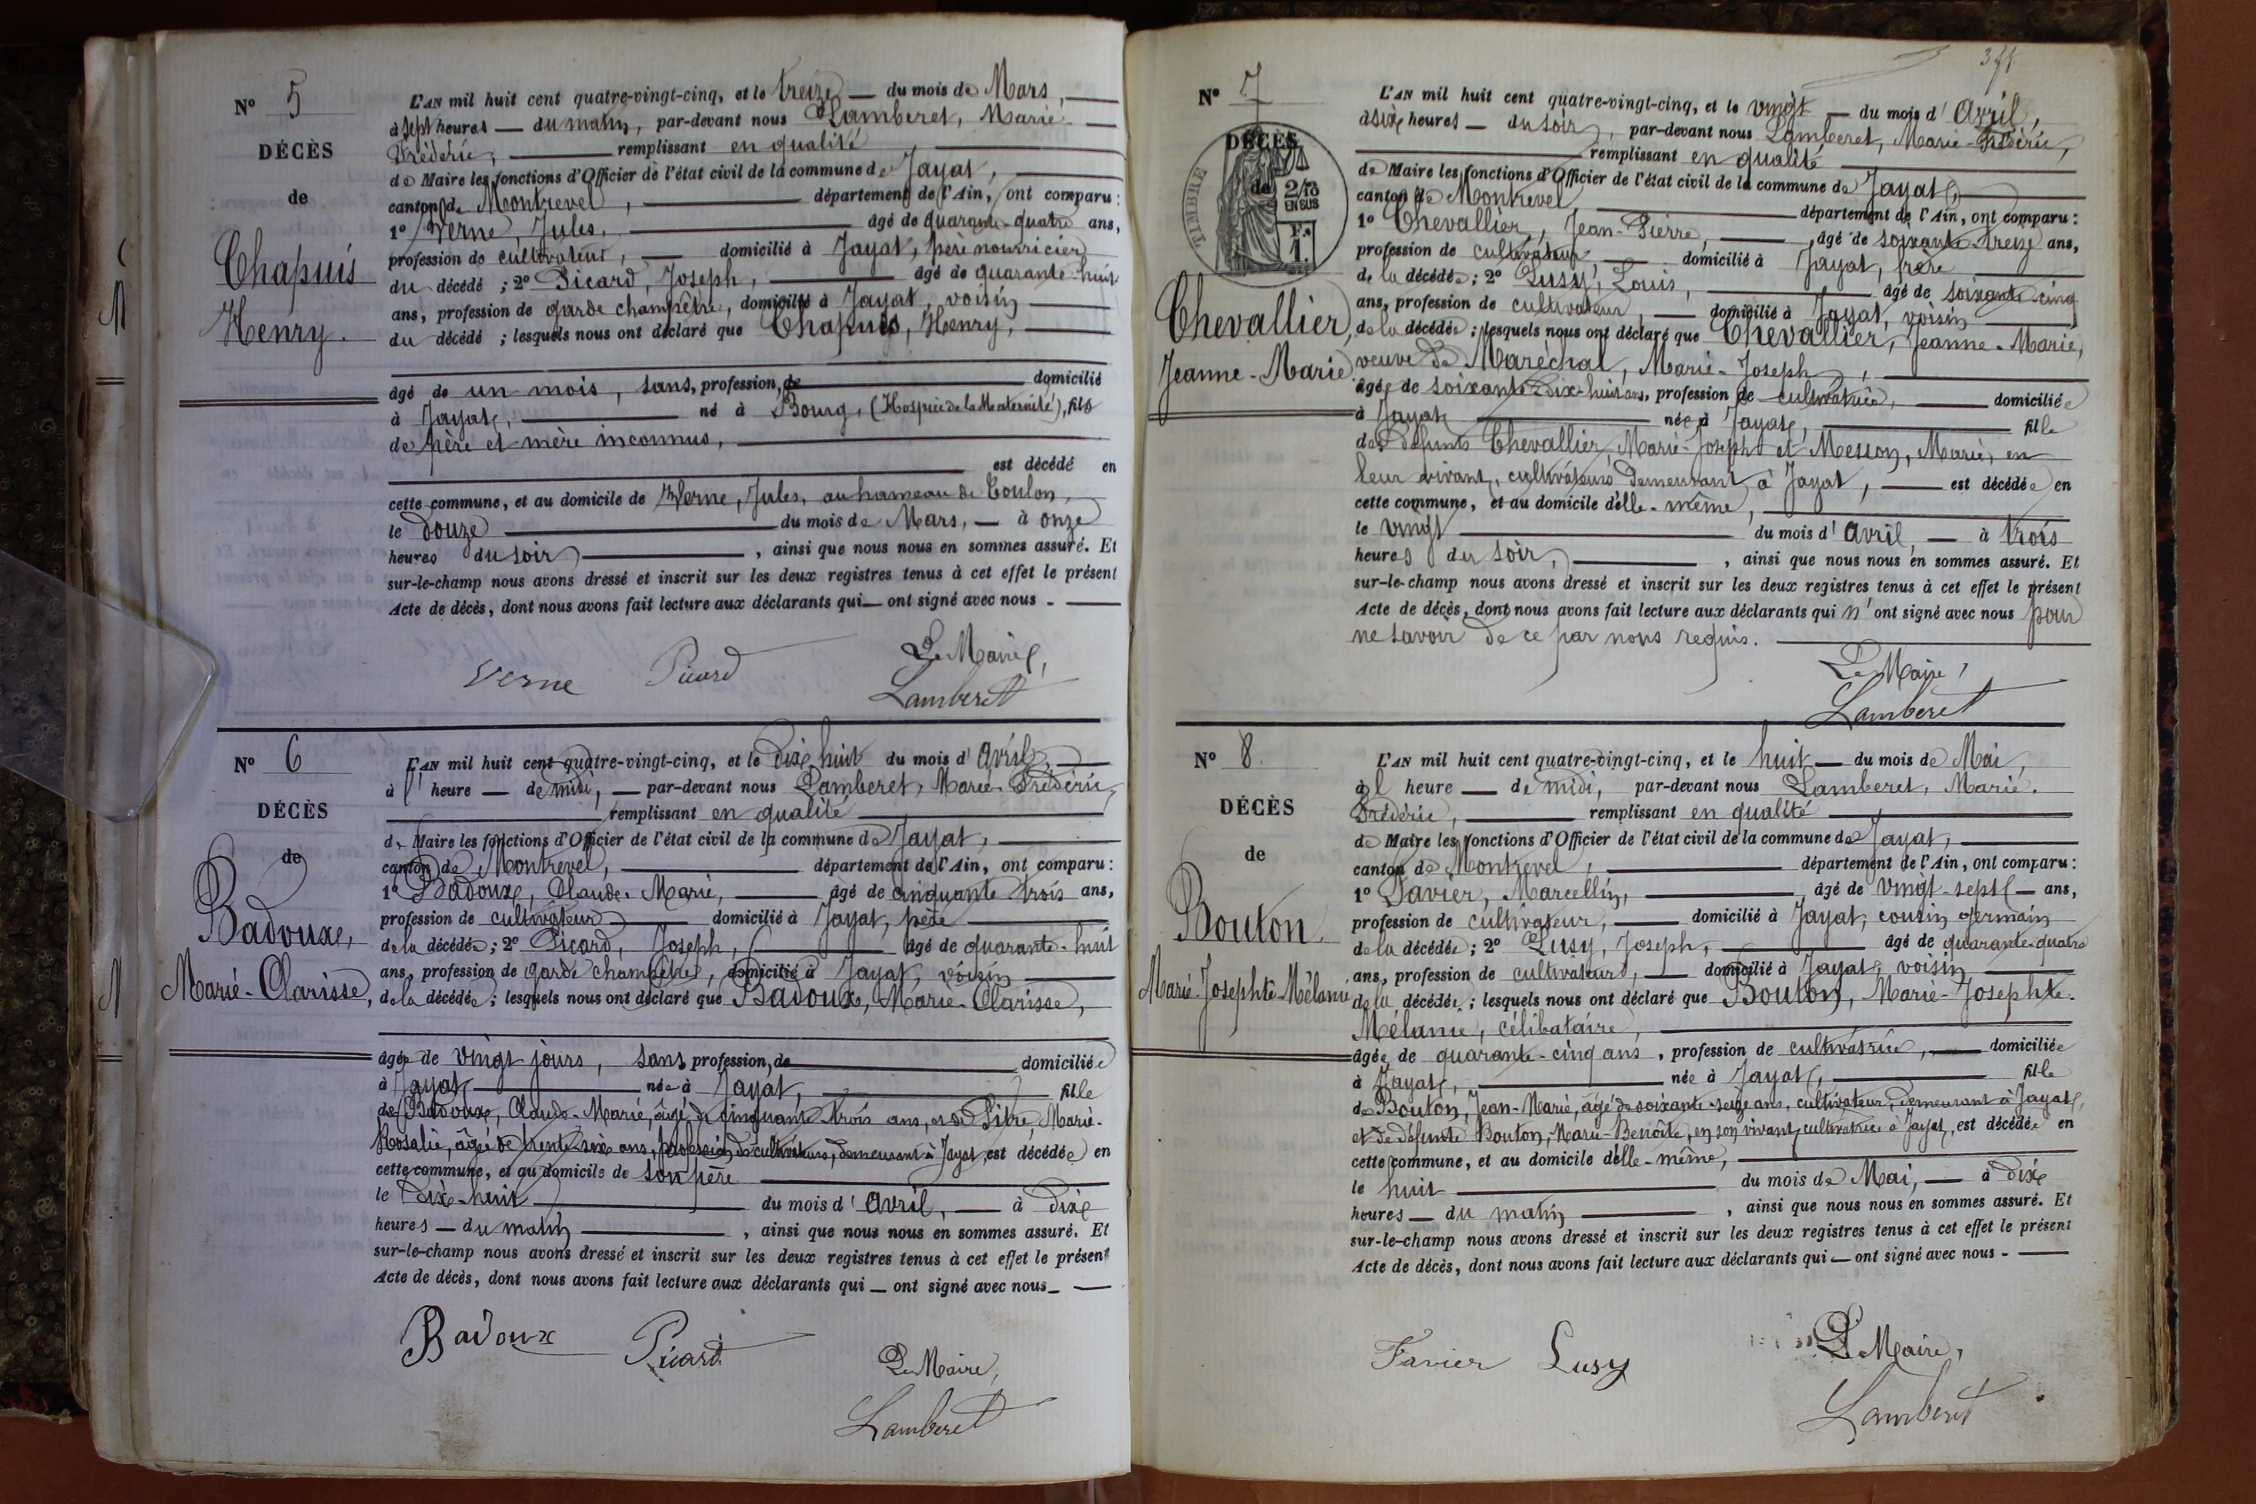 N° 5
DÉCÈS
de
Chapuis
Henry.
L'AN mil huit cent quatre-vingt-cinq, et le treize — du mois de Mars,
à sept heures — du matin, par-devant nous Lamberet, Marie
Frédéric, remplissant en qualité
de Maire les fonctions d'Officier de l'état civil de la commune de Jayat,
canton de Montrevel, département de l'Ain, ont comparu :
1° Verne, Jules, âgé de quarante-quatre ans,
profession de cultivateur, domicilié à Jayat, père nourricier
du décédé ; 2° Picard, Joseph, âgé de quarante-huit
ans, profession de garde champêtre, domicilié à Jayat, voisin
du décédé ; lesquels nous ont déclaré que Chapuis, Henry,
âgé de un mois, sans profession, de domicilié
à Jayat, né à Bourg, (Hospice de la Maternité), fils
de père et mère inconnus,
est décédé en
cette commune, et au domicile de Verne, Jules, au hameau de Toulon,
le douze du mois de Mars, — à onze
heures du soir, ainsi que nous nous en sommes assuré. Et
sur-le-champ nous avons dressé et inscrit sur les deux registres tenus à cet effet le présent
Acte de décès, dont nous avons fait lecture aux déclarants qui — ont signé avec nous -
Verne Picard Le Maire,
Lamberet
N° 6
DÉCÈS
de
Badoux,
Marie-Clarisse,
L'AN mil huit cent quatre-vingt-cinq, et le dix-huit du mois d'avril,
à l' heure — de midi, — par-devant nous Lamberet, Marie-Frédéric,
remplissant en qualité
de Maire les fonctions d'Officier de l'état civil de la commune de Jayat,
canton de Montrevel, département de l'Ain, ont comparu :
1° Badoux, Claude-Marie, âgé de cinquante-trois ans,
profession de cultivateur domicilié à Jayat, père
de la décédée ; 2° Picard, Joseph, âgé de quarante-huit
ans, profession de garde champêtre, domicilié à Jayat, voisin
de la décédée ; lesquels nous ont déclaré que Badoux, Marie-Clarisse,
âgée de vingt jours, sans profession, de domiciliée
à Jayat née à Jayat, fille
de Badoux, Claude-Marie, âgé de cinquante-trois ans, et de Pitre, Marie-
Rosalie, âgée de trente-six ans, profession de cultivateurs, demeurant à Jayat, est décédée en
cette commune, et au domicile de son père
le dix-huit du mois d'avril, — à dix
heures — du matin, ainsi que nous nous en sommes assuré. Et
sur-le-champ nous avons dressé et inscrit sur les deux registres tenus à cet effet le présent
Acte de décès, dont nous avons fait lecture aux déclarants qui — ont signé avec nous -
Badoux Picard Le Maire,
Lamberet
N° 7
DÉCÈS
de
TIMBRE
2/10
EN SUS
1
Chevallier,
Jeanne-Marie.
L'AN mil huit cent quatre-vingt-cinq, et le vingt — du mois d'avril,
à six heures — du soir, par-devant nous Lamberet, Marie-Frédéric,
remplissant en qualité
de Maire les fonctions d'Officier de l'état civil de la commune de Jayat,
canton de Montrevel département de l'Ain, ont comparu :
1° Chevallier, Jean-Pierre, âgé de soixante-treize ans,
profession de cultivateur domicilié à Jayat, frère
de la décédée ; 2° Lusy, Louis, âgé de soixante-cinq
ans, profession de cultivateur, domicilié à Jayat, voisin
de la décédée ; lesquels nous ont déclaré que Chevallier, Jeanne-Marie,
veuve de Maréchal, Marie-Joseph,
âgée de soixante-dix-huit ans, profession de cultivatrice, domiciliée
à Jayat née à Jayat, fille
des défunts Chevallier, Marie-Joseph et Messon, Marie, en
leur vivant, cultivateurs demeurant à Jayat, est décédée en
cette commune, et au domicile d'elle-même,
le vingt du mois d'avril — à trois
heures du soir, ainsi que nous nous en sommes assuré. Et
sur-le-champ nous avons dressé et inscrit sur les deux registres tenus à cet effet le présent
Acte de décès, dont nous avons fait lecture aux déclarants qui n'ont signé avec nous pour
ne savoir de ce par nous requis.
Le Maire,
Lamberet
N° 8
DÉCÈS
de
Bouton
Marie-Josephte-Mélanie
L'AN mil huit cent quatre-vingt-cinq, et le huit — du mois de Mai,
à l heure — de midi, par-devant nous Lamberet, Marie-
Frédéric, remplissant en qualité
de Maire les fonctions d'Officier de l'état civil de la commune de Jayat,
canton de Montrevel, département de l'Ain, ont comparu :
1° Favier, Marcellin, âgé de vingt-sept — ans,
profession de cultivateur, domicilié à Jayat, cousin germain
de la décédée ; 2° Lusy, Joseph, âgé de quarante-quatre
ans, profession de cultivateur, domicilié à Jayat, voisin
de la décédée ; lesquels nous ont déclaré que Bouton, Marie-Josephte-
Mélanie, célibataire,
âgée de quarante-cinq ans, profession de cultivatrice, domiciliée
à Jayat, née à Jayat, fille
de Bouton, Jean-Marie, âgé de soixante-seize ans, cultivateur, demeurant à Jayat,
et de défunte Bouton, Marie-Benoîte, en son vivant, cultivatrice à Jayat, est décédée en
cette commune, et au domicile d'elle-même,
le huit du mois de Mai, — à dix
heures — du matin, ainsi que nous nous en sommes assuré. Et
sur-le-champ nous avons dressé et inscrit sur les deux registres tenus à cet effet le présent
Acte de décès, dont nous avons fait lecture aux déclarants qui — ont signé avec nous -
Favier Lusy Le Maire,
Lamberet